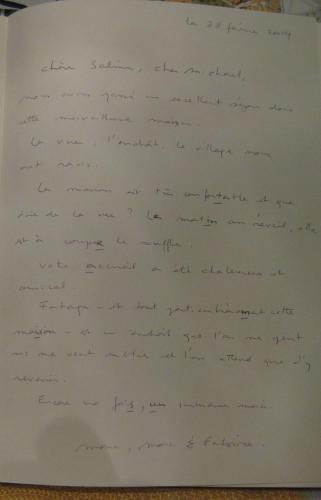 le 28 février 2014
chère Sabine, cher Michael,
nous avons passé un excellent séjour dans
cette merveilleuse maison.
La vue, l'endroit, le village nous
ont ravis.
La maison est très confortable et que
dire de la vue ? Le matin au réveil, elle
est à couper le souffle.
Votre accueil a été chaleureux et
amical.
et tout particulièrement cette
maison - est un endroit que l'on ne peut
ni ne veut oublier et l'on attend que d'y
revenir.
Encore une fois, un immense merci.